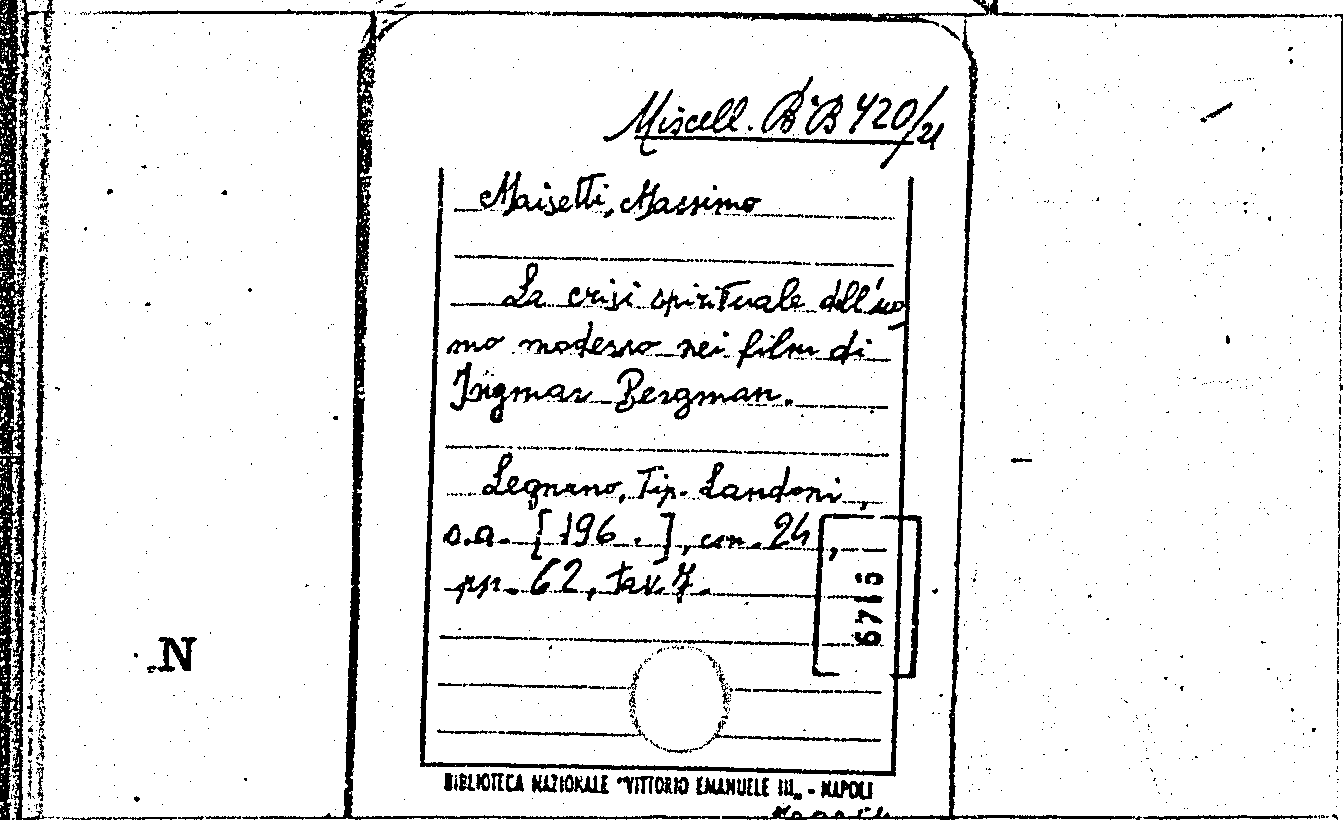 Miscell. BB 420/21
Maisetti, Massimo
La crisi spirituale dell'uo
mo moderno nei film di
Ingmar Bergman.
Legnano, Tip. Landoni,
s.a. [196 . ], cm. 24,
pp. 62, tav. 7.
6715
N
BIBLIOTECA NAZIONALE "VITTORIO EMANUELE III„ - NAPOLI